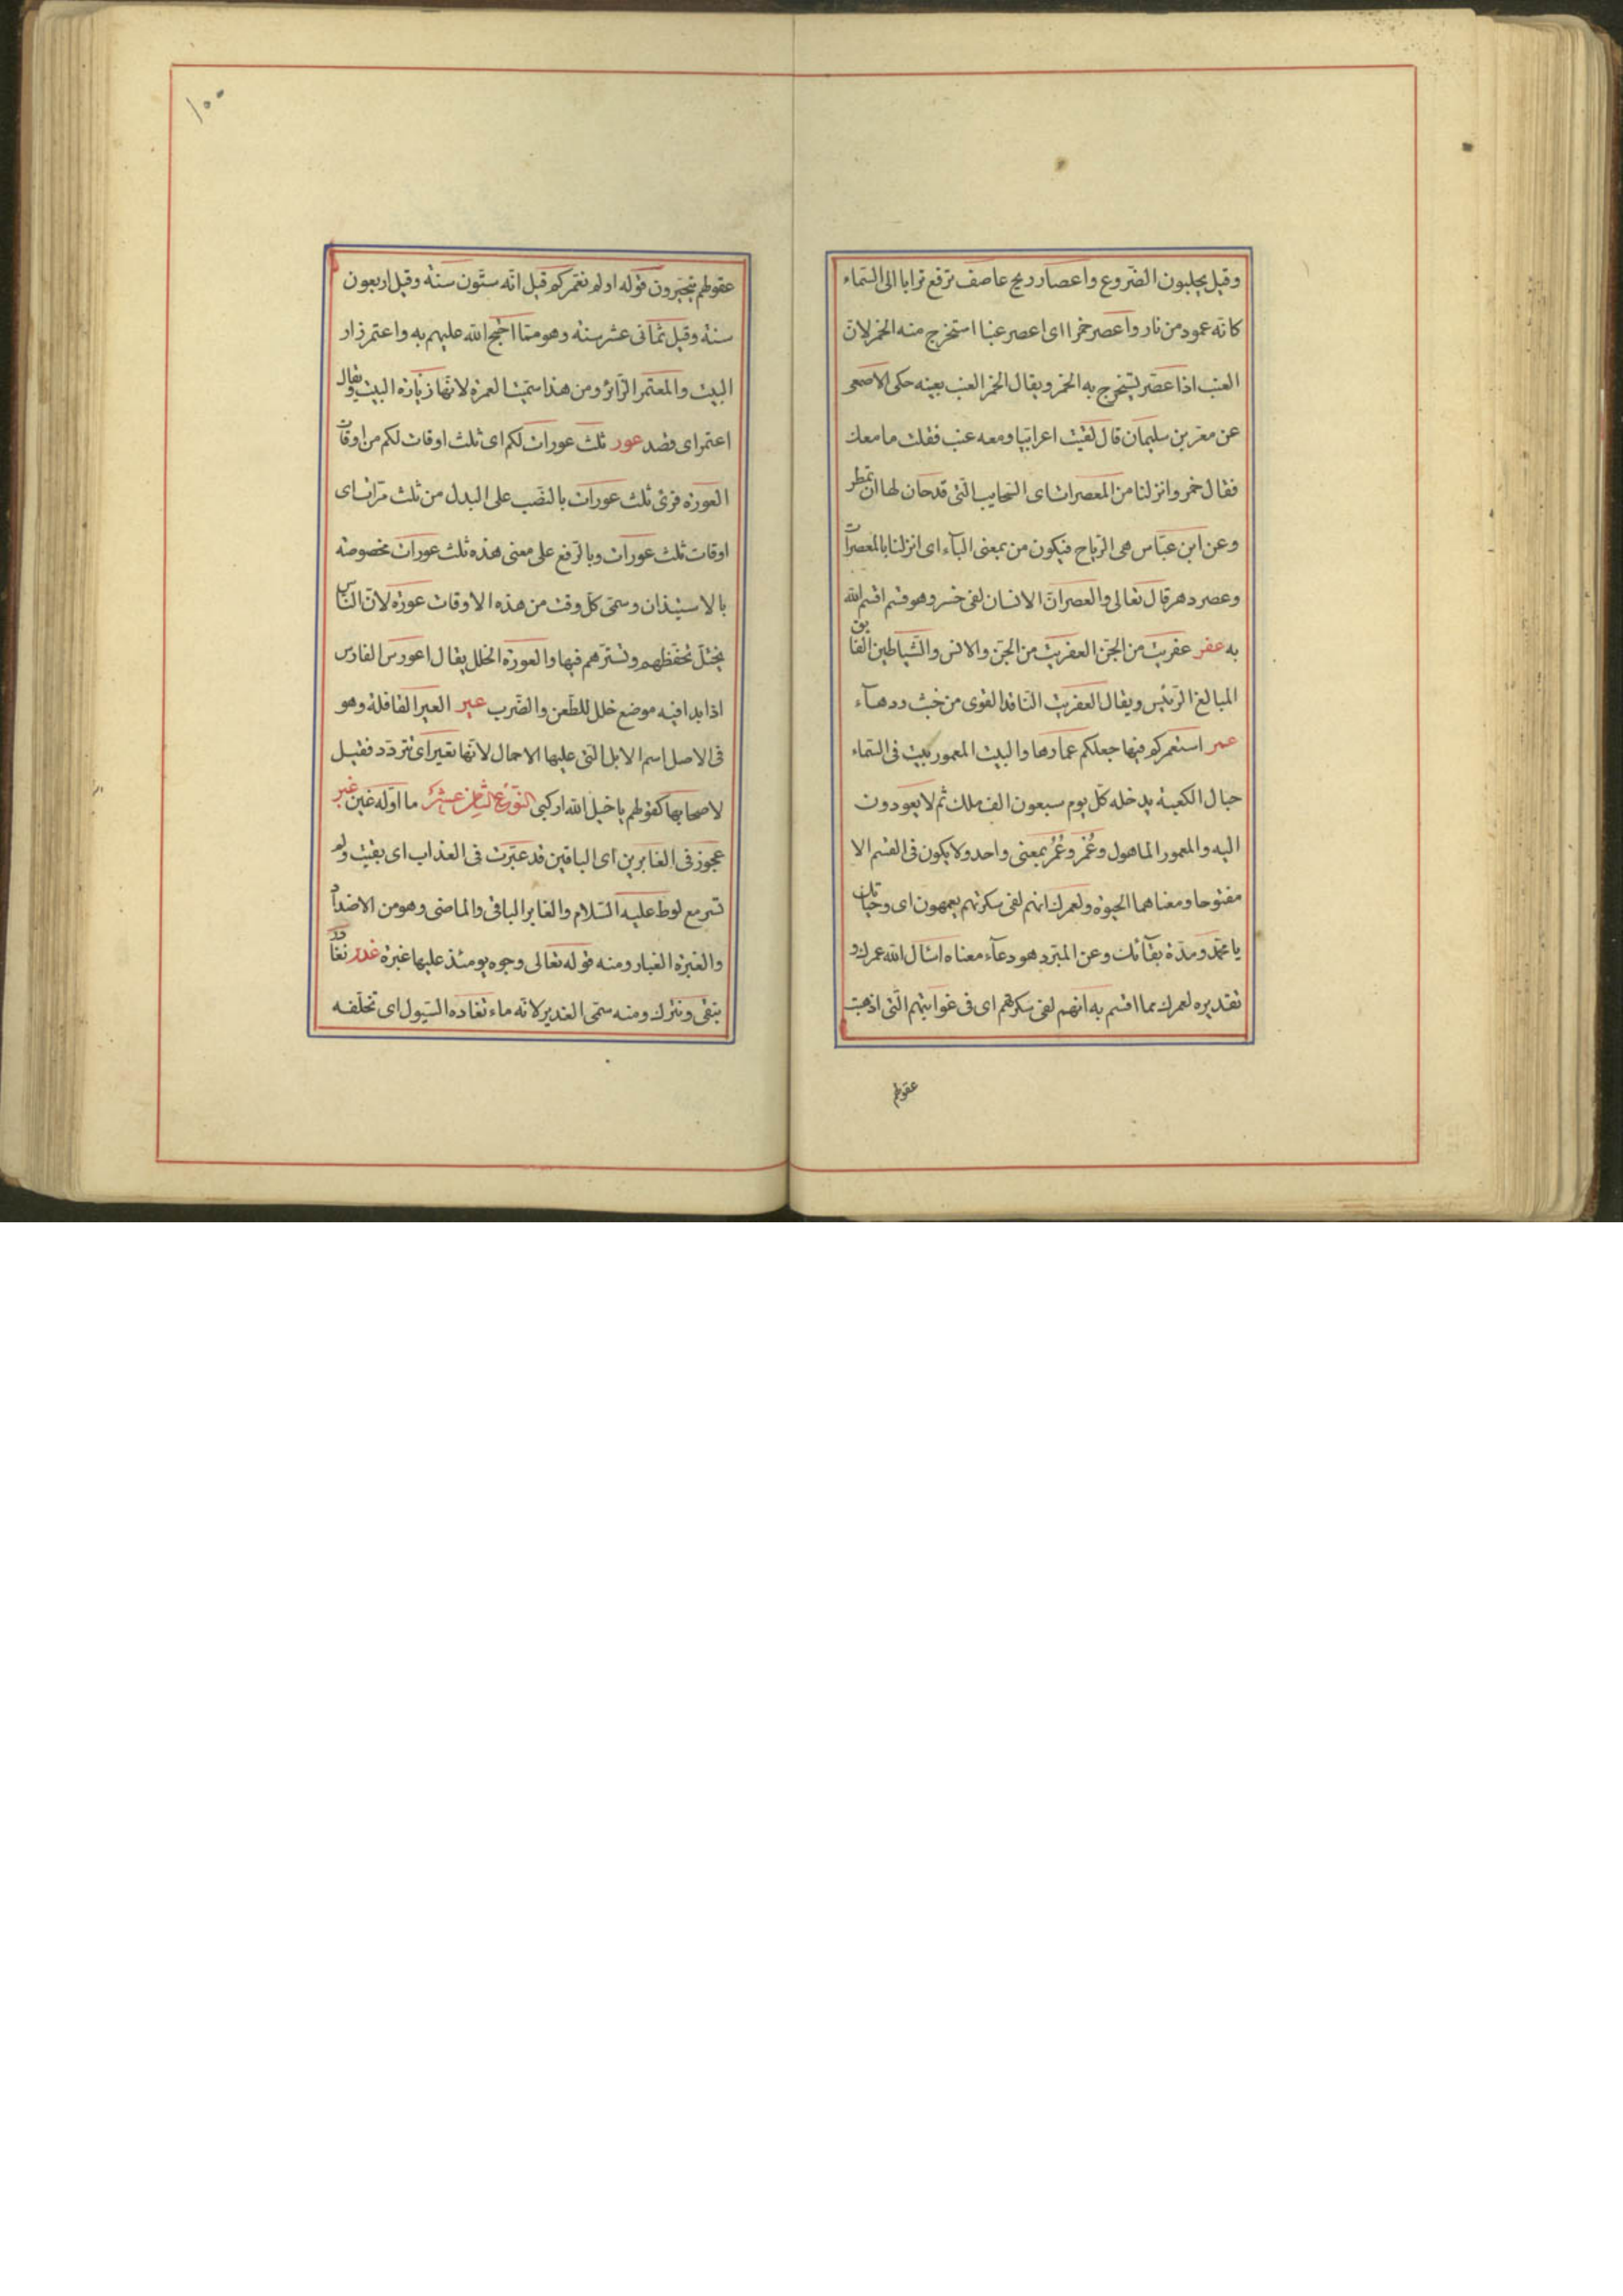 وقيل يحلبون الضروع واعصار ريح عاصف ترفع ترابا الى السّماء
كانّه عمود من نار واعصر خمرا اى اعصر عنبا استخرج منه الخمر لانّ
العنب اذا عصر يستخرج به الخمر ويقال الخمر العنب بعينه حكى الاصمعى
عن معتمر بن سليمان قال لقيت اعرابيّا ومعه عنب فقلت ما معك
فقال خمر وانزلنا من المعصرات اى السّحايب الّتى قد حان لها ان تمطر
وعن ابن عبّاس هى الرّياح فيكون من بمعنى الباء اى انزلنا بالمعصرات
وعصر دهر قال تعالى والعصر انّ الانسان لفى خسر وهو قسم اقسم الله
به عفر عفريت من الجنّ العفريت من الجنّ والانس والشّياطين الفايق
المبالغ الرّئيس ويقال العفريت النّافذ القوى من خبث ودهآء
عمر استعمركم فيها جعلكم عمّارها والبيت المعمور بيت فى السّماء
حيال الكعبة يدخله كلّ يوم سبعون الف ملك ثم لا يعودون
اليه والمعمور الماهول وعَمْر وعُمُر بمعنى واحد ولا يكون فى القسم الا
مفتوحا ومعناهما الحيوة ولعمرك انهم لفى سكرتهم يعمهون اى وحياتك
يا محمّد ومدّة بقآئك وعن المبرّد هو دعآء معناه اسال الله عمرك و
تقديره لعمرك مما اقسم به انّهم لفى سكرتهم اى فى غوايتهم الّتى اذهبت
عقولهم
١٠٠
عقولهم يتحيّرون قوله اولم نعمركم قيل انّه ستّون سنة وقيل اربعون
سنة وقيل ثمانى عشر سنة وهو ممّا احتج الله عليهم به واعتمر زار
البيت والمعتمر الزّائر ومن هذا سمّيت العمرة لانّها زيارة البيت ويقال
اعتمر اى قصد عور ثلث عورات لكم اى ثلث اوقات لكم من اوقات
العورة قرئ ثلث عورات بالنصّب على البدل من ثلث مرّات اى
اوقات ثلث عورات وبالرّفع على معنى هذه ثلث عورات مخصوصة
بالاستيذان وسمّى كلّ وقت من هذه الاوقات عورة لانّ النّاس
يختلّ تحفّظهم وتستّرهم فيها والعورة الخلل يقال اعور الفارس
اذا بدا فيه موضع خلل للطّعن والضّرب عير العير القافلة وهو
فى الاصل اسم الابل الّتى عليها الاحمال لانّها تعير اى تتردّد فقيل
لاصحابها كقولهم يا خيل الله اركبى النّوع الثّامن عشر ما اوّله غين غبر
عجوز فى الغابرين اى الباقين قد غبّرت فى العذاب اى بقيت ولم
تسر مع لوط عليه السّلام والغابر الباقى والماضى وهو من الاضداد
والغبرة الغبار ومنه قوله تعالى وجوه يومئذ عليها غبرة غدر نغادر
نبقى ونترك ومنه سمّى الغدير لانّه ماء تغادره السّيول اى تخلّفه